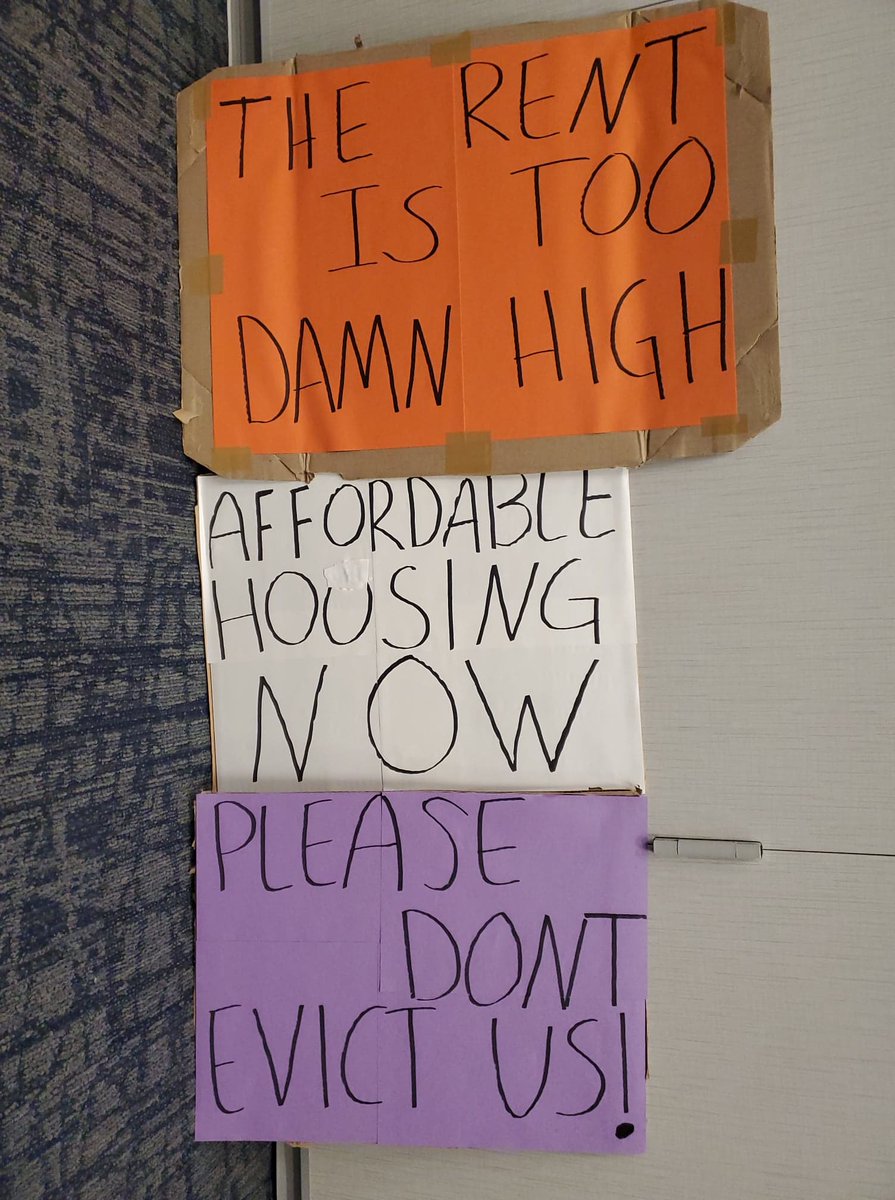 THE RENT
IS TOO
DAMN HIGH
AFFORDABLE
HOUSING
NOW
PLEASE
DONT
EVICT US!